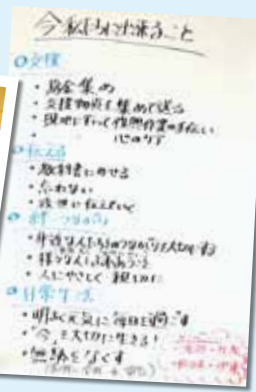 今 私たちに出来ること
○支援
・募金集め
・支援物資を集めて送る
・現地に行って復興作業の手伝い
心のケア
○伝える
・教科書にのせる
・忘れない
・後世に伝えていく
○絆 つながり
・身近な人たちとのつながりを大切にする
・様々な人とふれあうこと
・人にやさしく 親切に
○日常生活
・明るく元気に毎日を過ごす
・「今」を大切に生きる!
・無駄をなくす